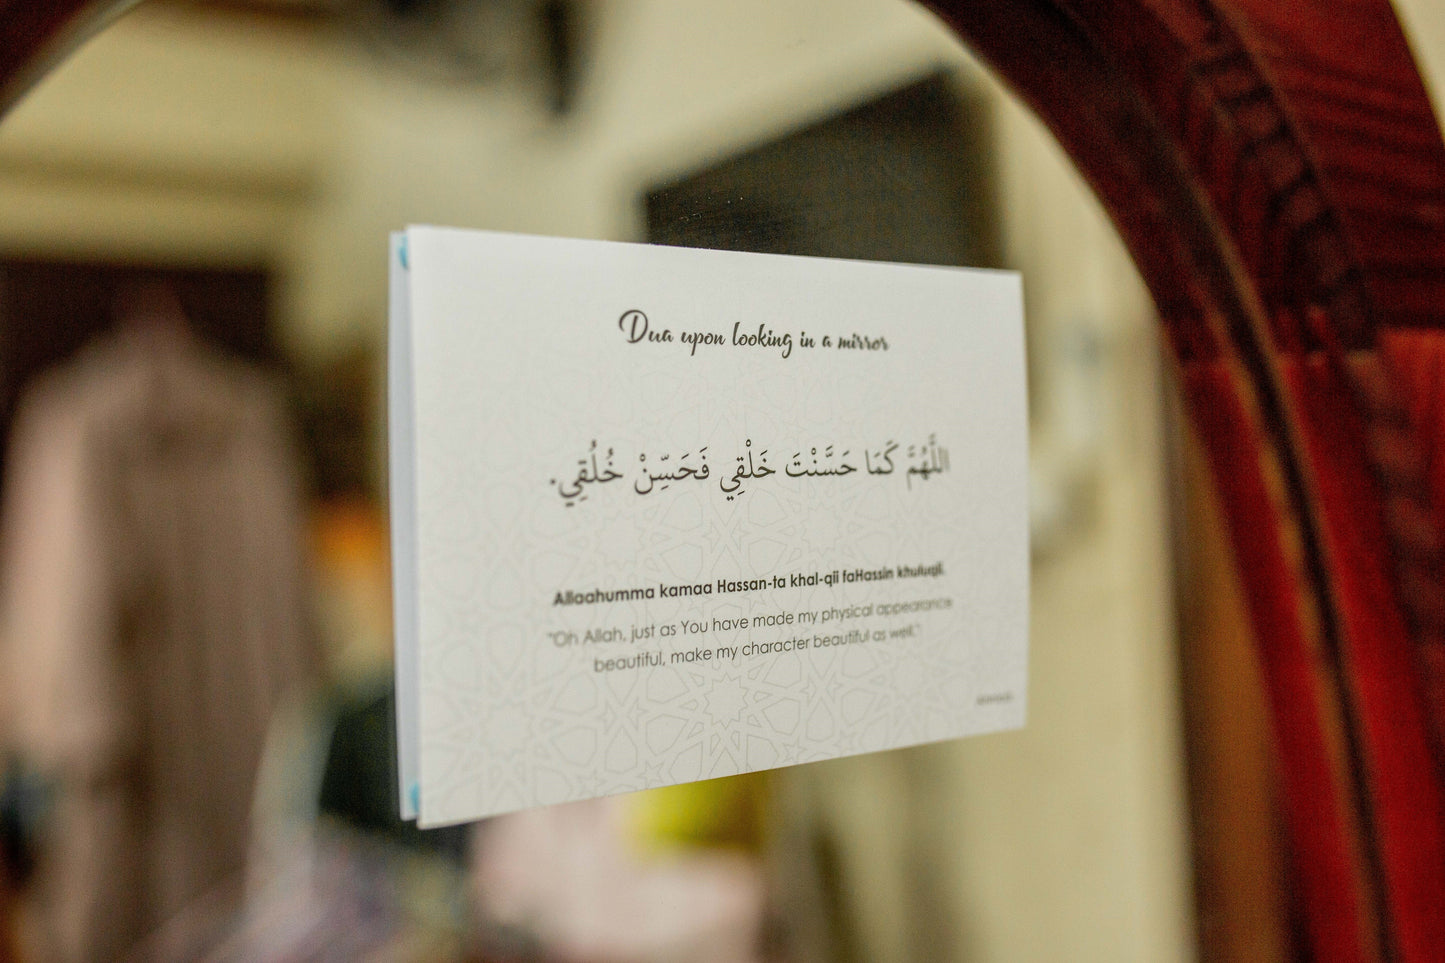 Dua upon looking in a mirror
اللَّهُمَّ كَمَا حَسَّنْتَ خَلْقِي فَحَسِّنْ خُلُقِي.
Allaahumma kamaa Hassan-ta khal-qii faHassin khuluqii.
"Oh Allah, just as You have made my physical appearance
beautiful, make my character beautiful as well."